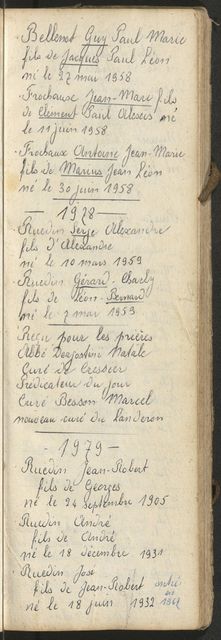 Bellenot Guy Paul Marie
fils de Jacques Paul Léon
né le 27 mai 1958
Frochaux Jean-Marc fils
de Clément Paul Alexis né
le 11 juin 1958
Frochaux Antoine Jean-Marie
fils de Marius Jean Léon
né le 30 juin 1958
1978
Ruedin Serge Alexandre
fils d'Alexandre
né le 10 mars 1959
Ruedin Gérard Charly
fils de Léon-Bernard
né le 7 mai 1959
Reçu pour les prières
Abbé Natale
Curé de Cressier
Prédicateur du jour
Curé Besson Marcel
nouveau curé du Landeron
1979
Ruedin Jean-Robert
fils de Georges
né le 24 septembre 1905
Ruedin André
fils de André
né le 18 décembre 1931
Ruedin José
fils de Jean-Robert
né le 18 juin 1932